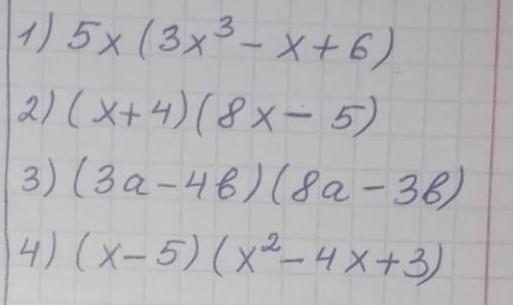 1) 5x(3x³ - x + 6)
2) (x+4)(8x - 5)
3) (3a - 4в)(8a - 3в)
4) (x - 5)(x² - 4x + 3)